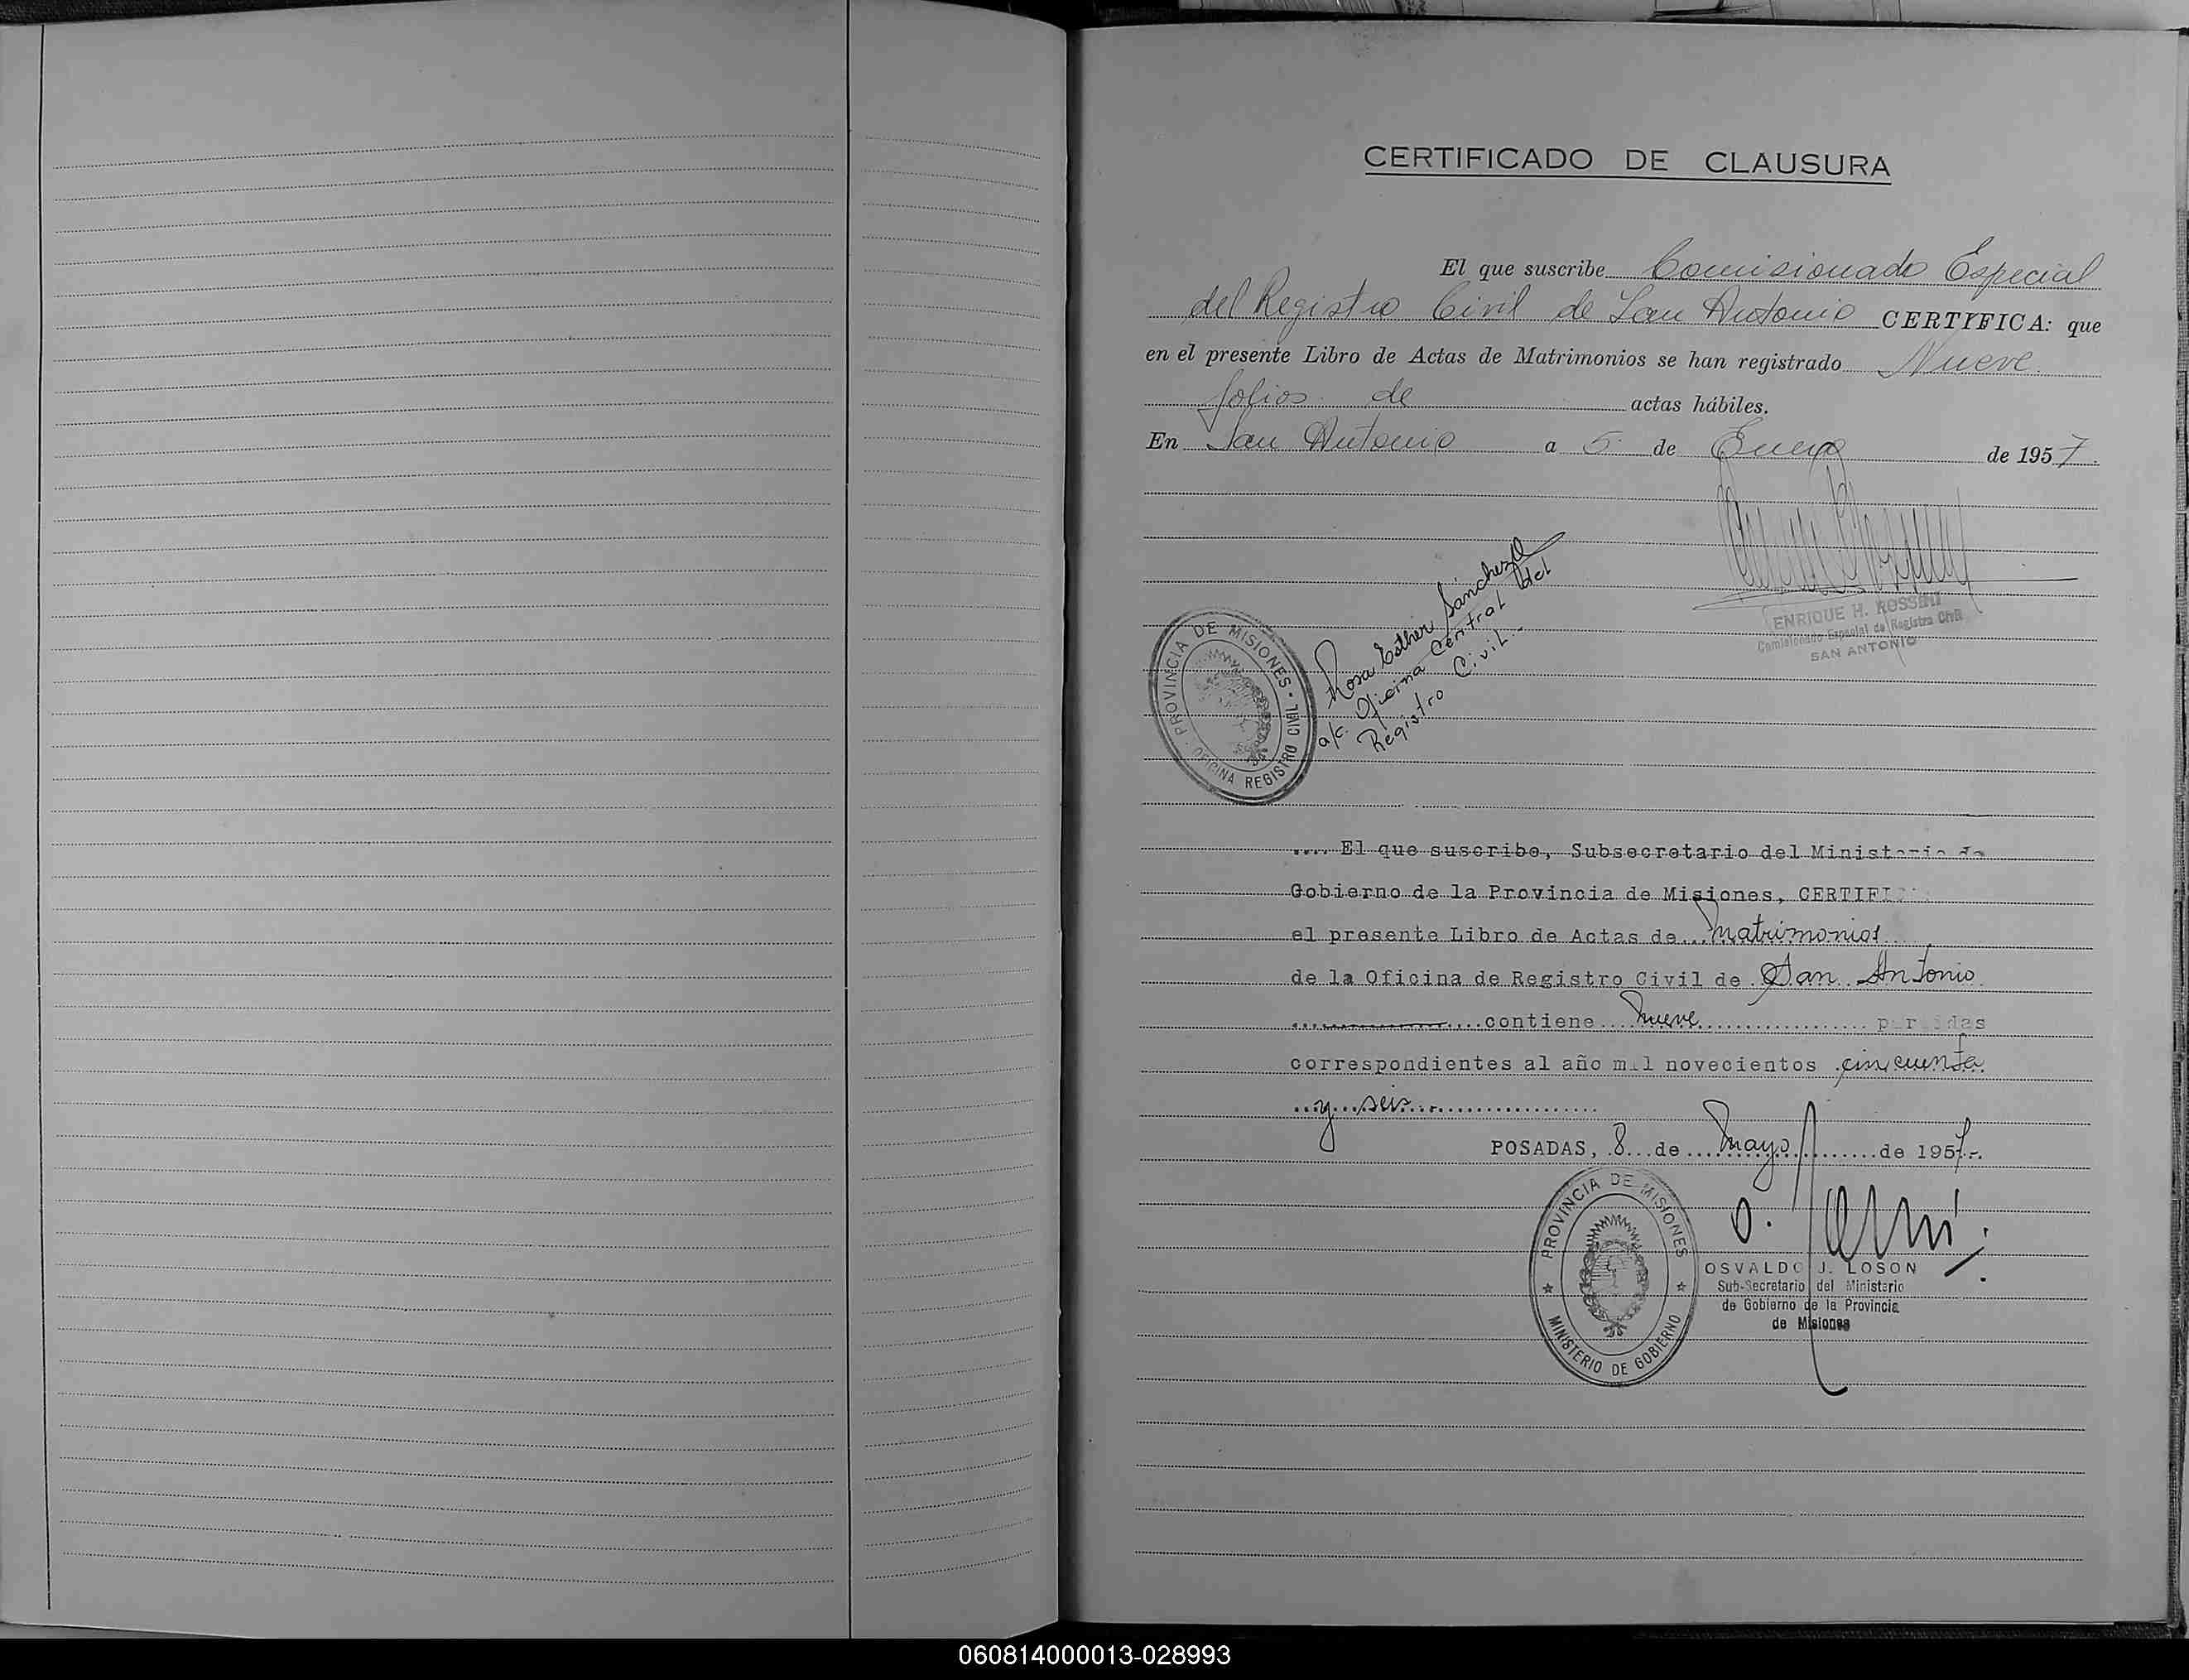 CERTIFICADO DE CLAUSURA
El que suscribe Comisionado Especial
del Registro Civil de San Antonio CERTIFICA: que
en el presente Libro de Actas de Matrimonios se han registrado Nueve
folios de actas hábiles.
En San Antonio a 5 de Enero de 1957.
ENRIQUE H. ROSSINI
Comisionado Especial de Registro Civil
SAN ANTONIO
PROVINCIA DE MISIONES
OFICINA REGISTRO CIVIL
Rosa Esther Sánchez
a/c. Oficina Central del
Registro Civil.-
.... El que suscribe, Subsecretario del Ministerio de
Gobierno de la Provincia de Misiones, CERTIFI
el presente Libro de Actas de...Matrimonios
de la Oficina de Registro Civil de San Antonio
contiene nueve partidas
correspondientes al año mil novecientos cincuenta
y seis
POSADAS, 8 de Mayo de 1957.-
PROVINCIA DE MISIONES
MINISTERIO DE GOBIERNO
OSVALDO J. LOSON
Sub-Secretario del Ministerio
de Gobierno de la Provincia
de Misiones
060814000013-028993